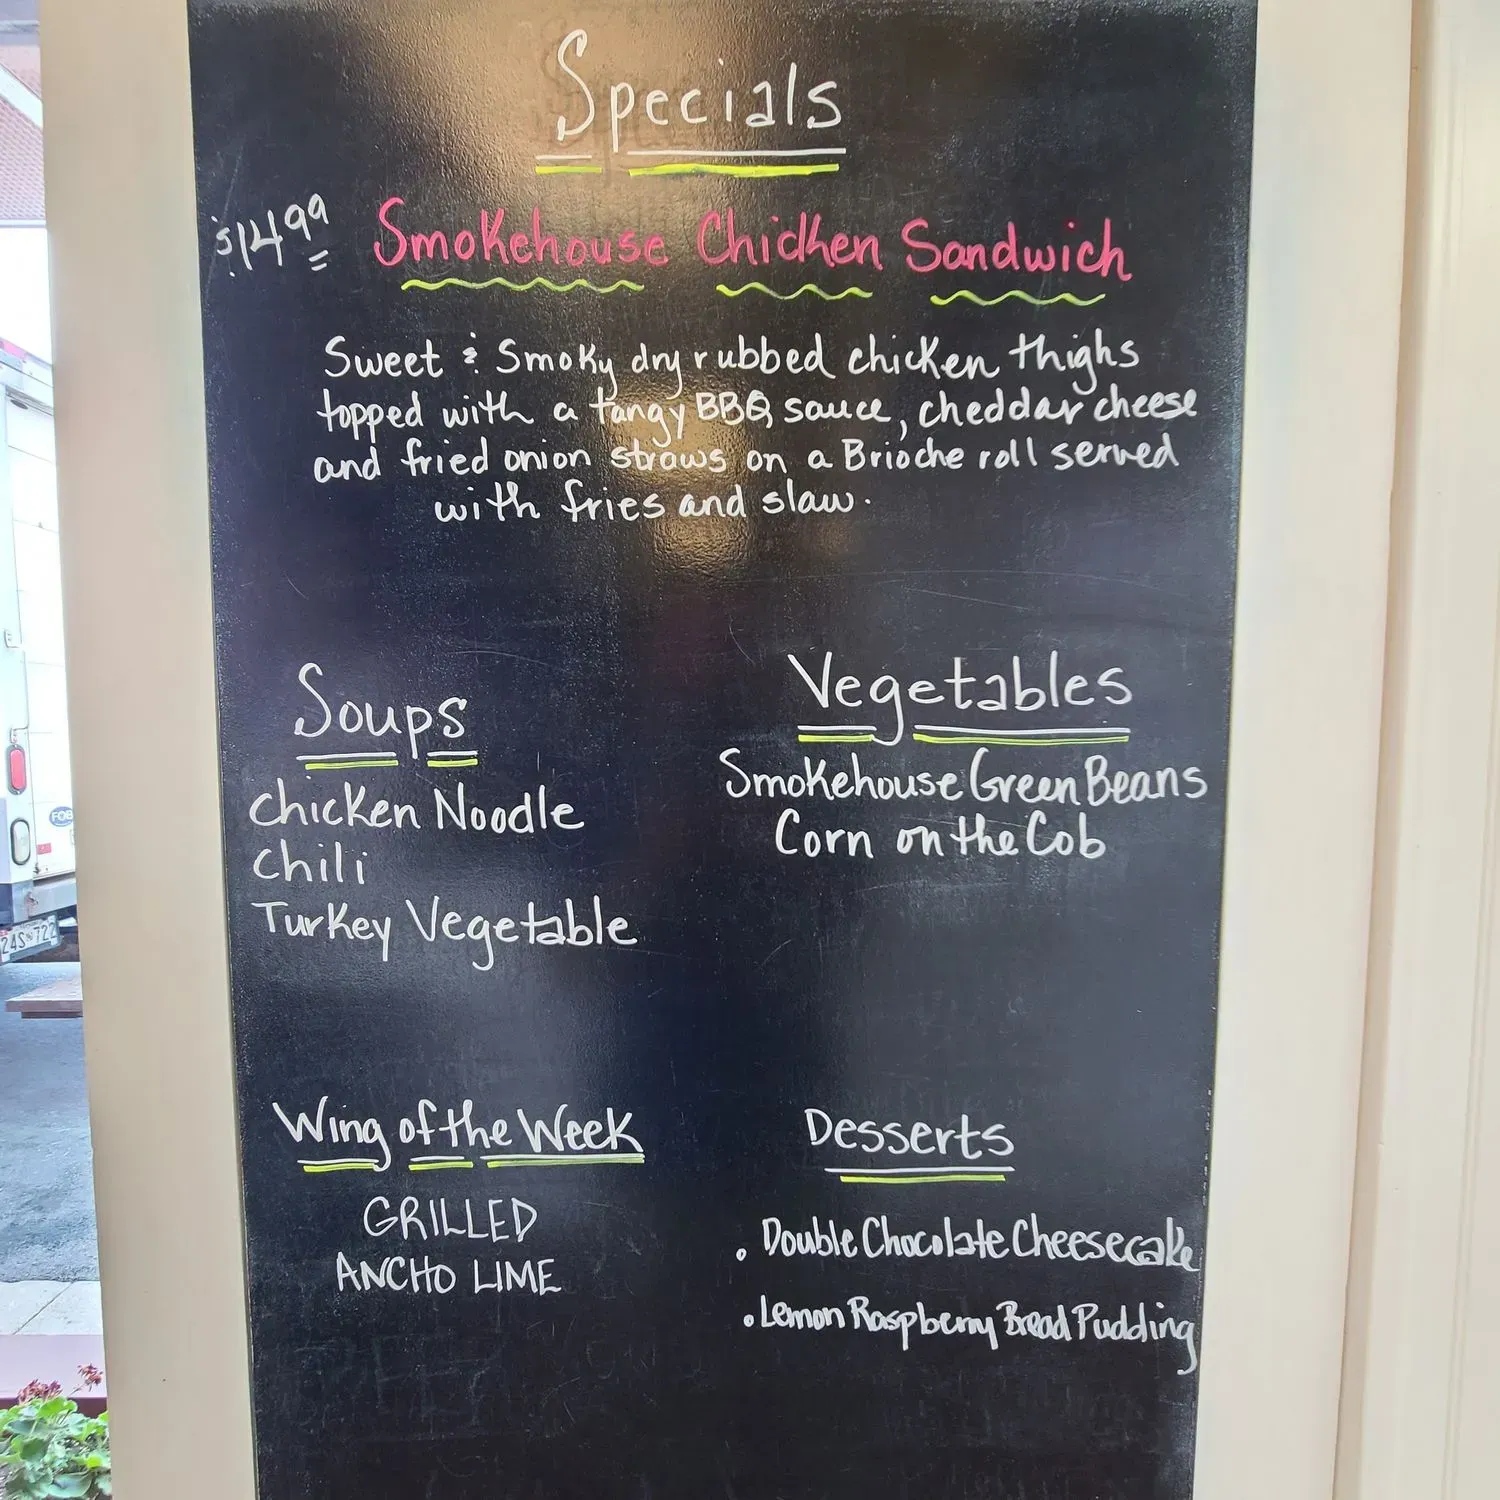 Specials
$14.99 Smokehouse Chicken Sandwich
Sweet & Smoky dry rubbed chicken thighs
topped with a tangy BBQ sauce, cheddar cheese
and fried onion straws on a Brioche roll served
with fries and slaw.
Soups
Chicken Noodle
Chili
Turkey Vegetable
Vegetables
Smokehouse Green Beans
Corn on the Cob
Wing of the Week
GRILLED
ANCHO LIME
Desserts
• Double Chocolate Cheesecake
• Lemon Raspberry Bread Pudding